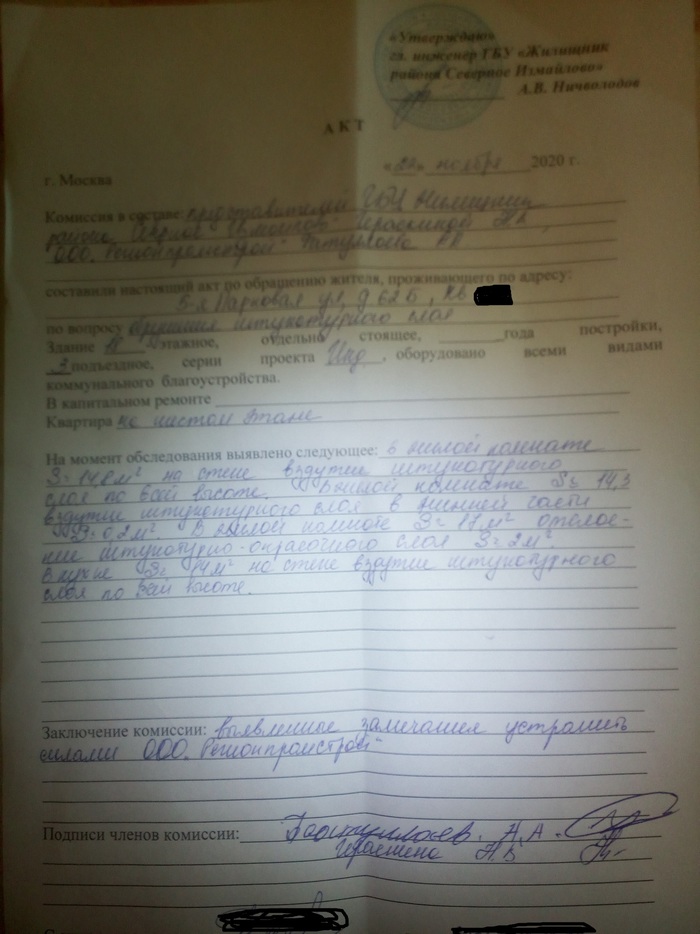 «Утверждаю»
гл. инженер ГБУ «Жилищник
района Северное Измайлово»
А.В. Ничволодов
АКТ
« » ноября 2020 г.
г. Москва
Комиссия в составе: представителей ГБУ Жилищник
района
ООО "Регионпромстрой"
составили настоящий акт по обращению жителя, проживающего по адресу:
Парковая ул, д 62 Б, кв
по вопросу штукатурного слоя
Здание этажное, отдельно стоящее, года постройки,
3 подъездное, серии проекта Инд, оборудовано всеми видами
коммунального благоустройства.
В капитальном ремонте
Квартира на этаже
На момент обследования выявлено следующее: в жилой комнате
на стене вздутие штукатурного
слоя по всей высоте. В жилой комнате S= 14,3
вздутие штукатурного слоя в нижней части
S= 0,2 м². В жилой комнате S= 17 м² отслое-
ние штукатурно-окрасочного слоя S= 2 м²
В кухне на стене вздутие штукатурного
слоя по всей высоте.
Заключение комиссии: выявленные замечания устранить
силами ООО "Регионпромстрой"
Подписи членов комиссии: